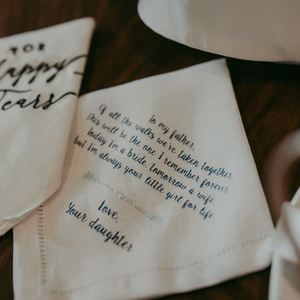 FOR
Happy
Tears
To my father,
Of all the walks we've taken together,
this will be the one I remember forever.
Today I'm a bride, tomorrow a wife,
but I'm always your little girl for life.
Love,
Your daughter